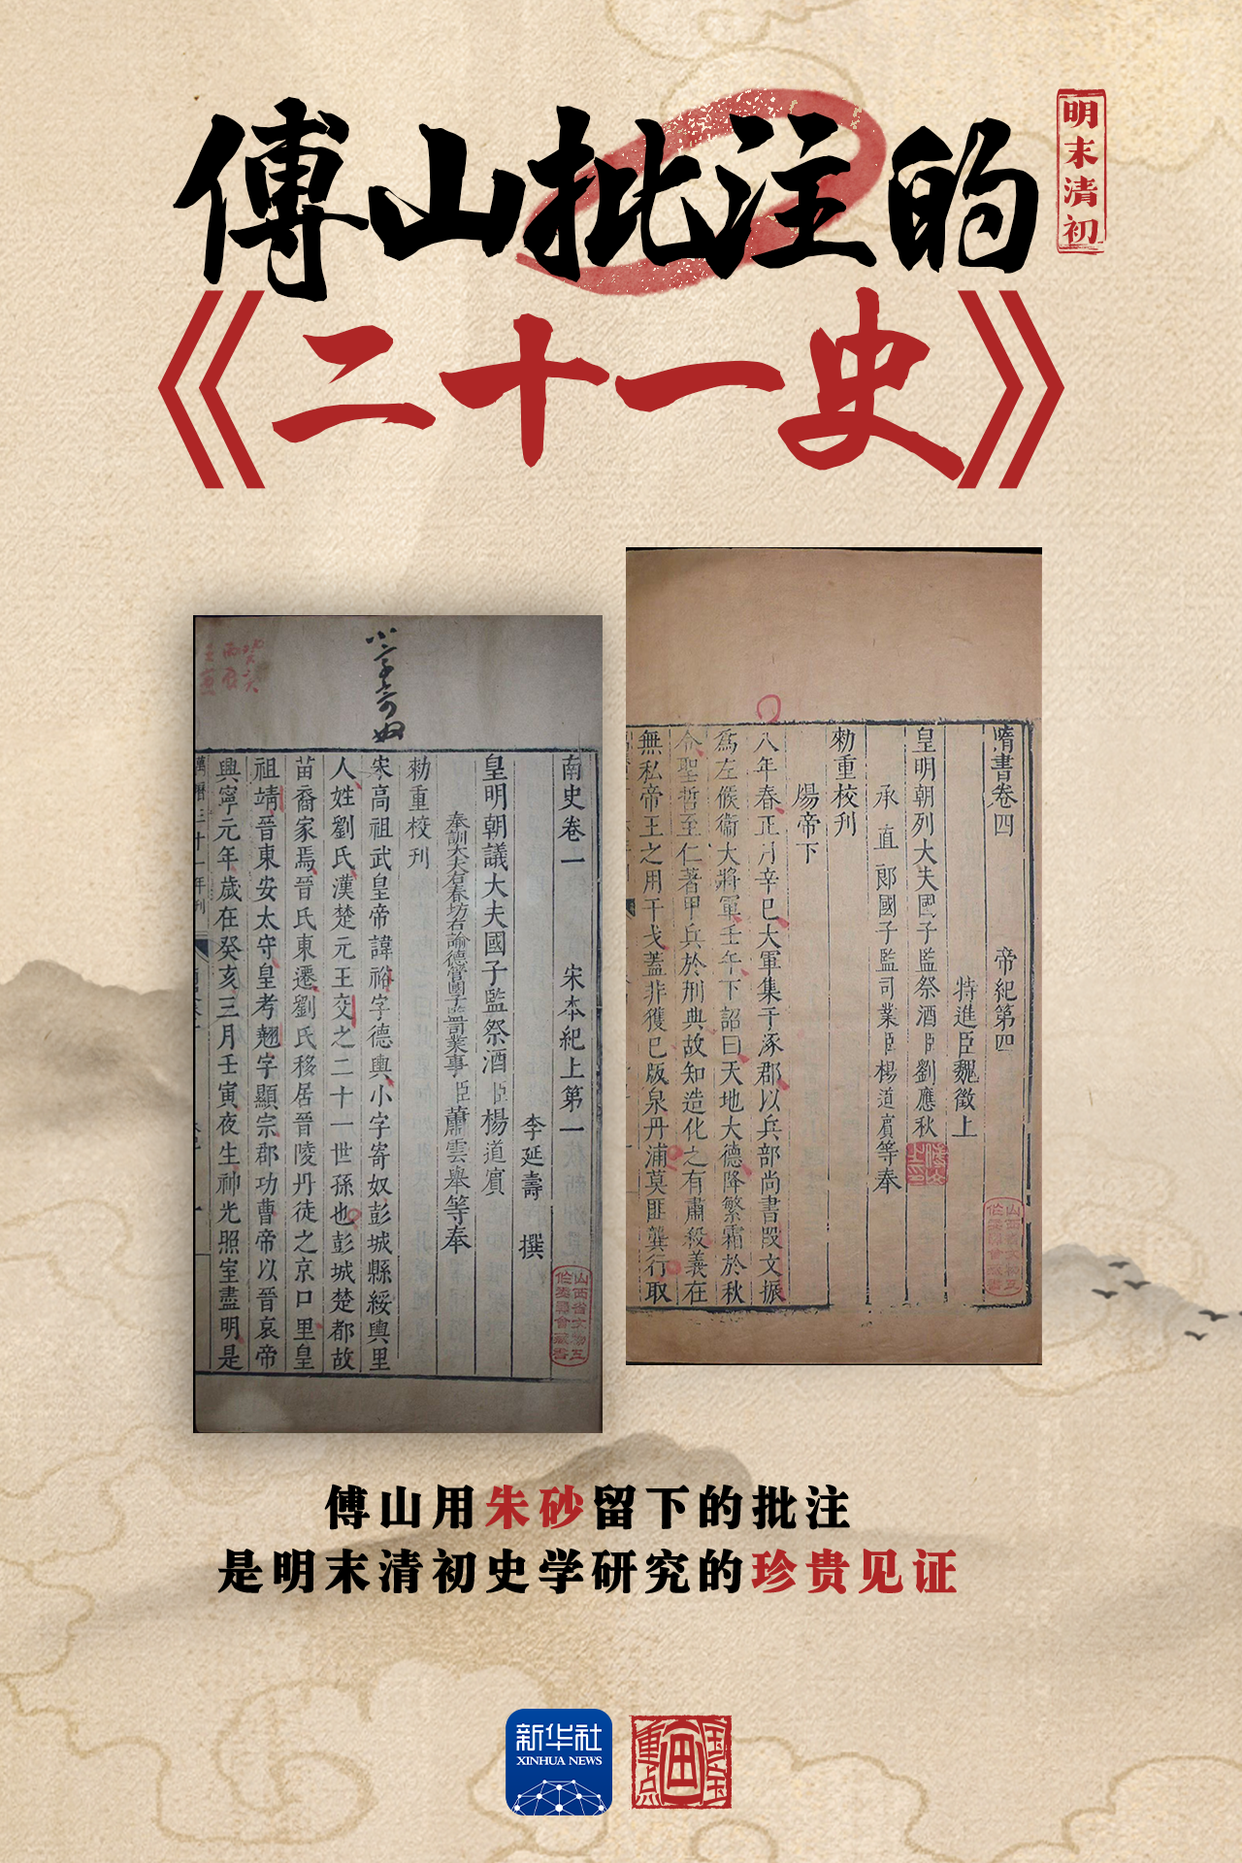 傅山批注的
明末清初
《二十一史》
小字寄奴
南史卷一
宋本紀上第一
李延壽 撰
皇明朝議大夫國子監祭酒臣楊道賓
奉訓大夫右春坊右諭德管國子監司業事臣蕭雲舉等奉
勑重校刊
宋高祖武皇帝諱裕字德輿小字寄奴彭城縣綏輿里
人姓劉氏漢楚元王交之二十一世孫也彭城楚都故
苗裔家焉晉氏東遷劉氏移居晉陵丹徒之京口里皇
祖靖晉東安太守皇考翹字顯宗郡功曹帝以晉哀帝
興寧元年歲在癸亥三月壬寅夜生神光照室盡明是
萬曆三十一年刊
隋書卷四
帝紀第四
特進臣魏徵上
皇明朝列大夫國子監祭酒臣劉應秋
承直郎國子監司業臣楊道賓等奉
勑重校刊
煬帝下
八年春正月辛巳大軍集于涿郡以兵部尚書段文振
爲左候衞大將軍壬午下詔曰天地大德降繁霜於秋
令聖哲至仁著甲兵於刑典故知造化之有肅殺義在
無私帝王之用干戈蓋非獲已版泉丹浦莫匪龔行取
傅山用朱砂留下的批注
是明末清初史学研究的珍贵见证
新华社
XINHUA NEWS
国宝
重点